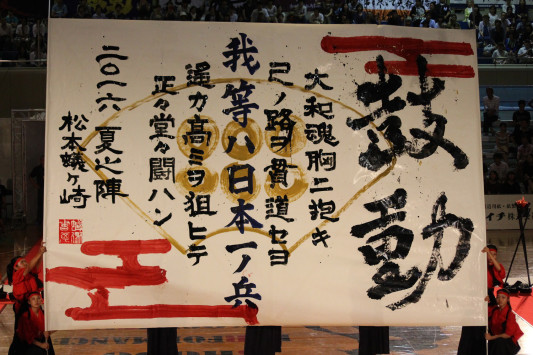 鼓動
大和魂胸ニ抱キ
己ノ路ヲ貫道セヨ
我等ハ日本一ノ兵
遥カ高ミヲ狙ヒテ
正々堂々闘ハン
二〇一六 夏之陣
松本蟻ヶ崎